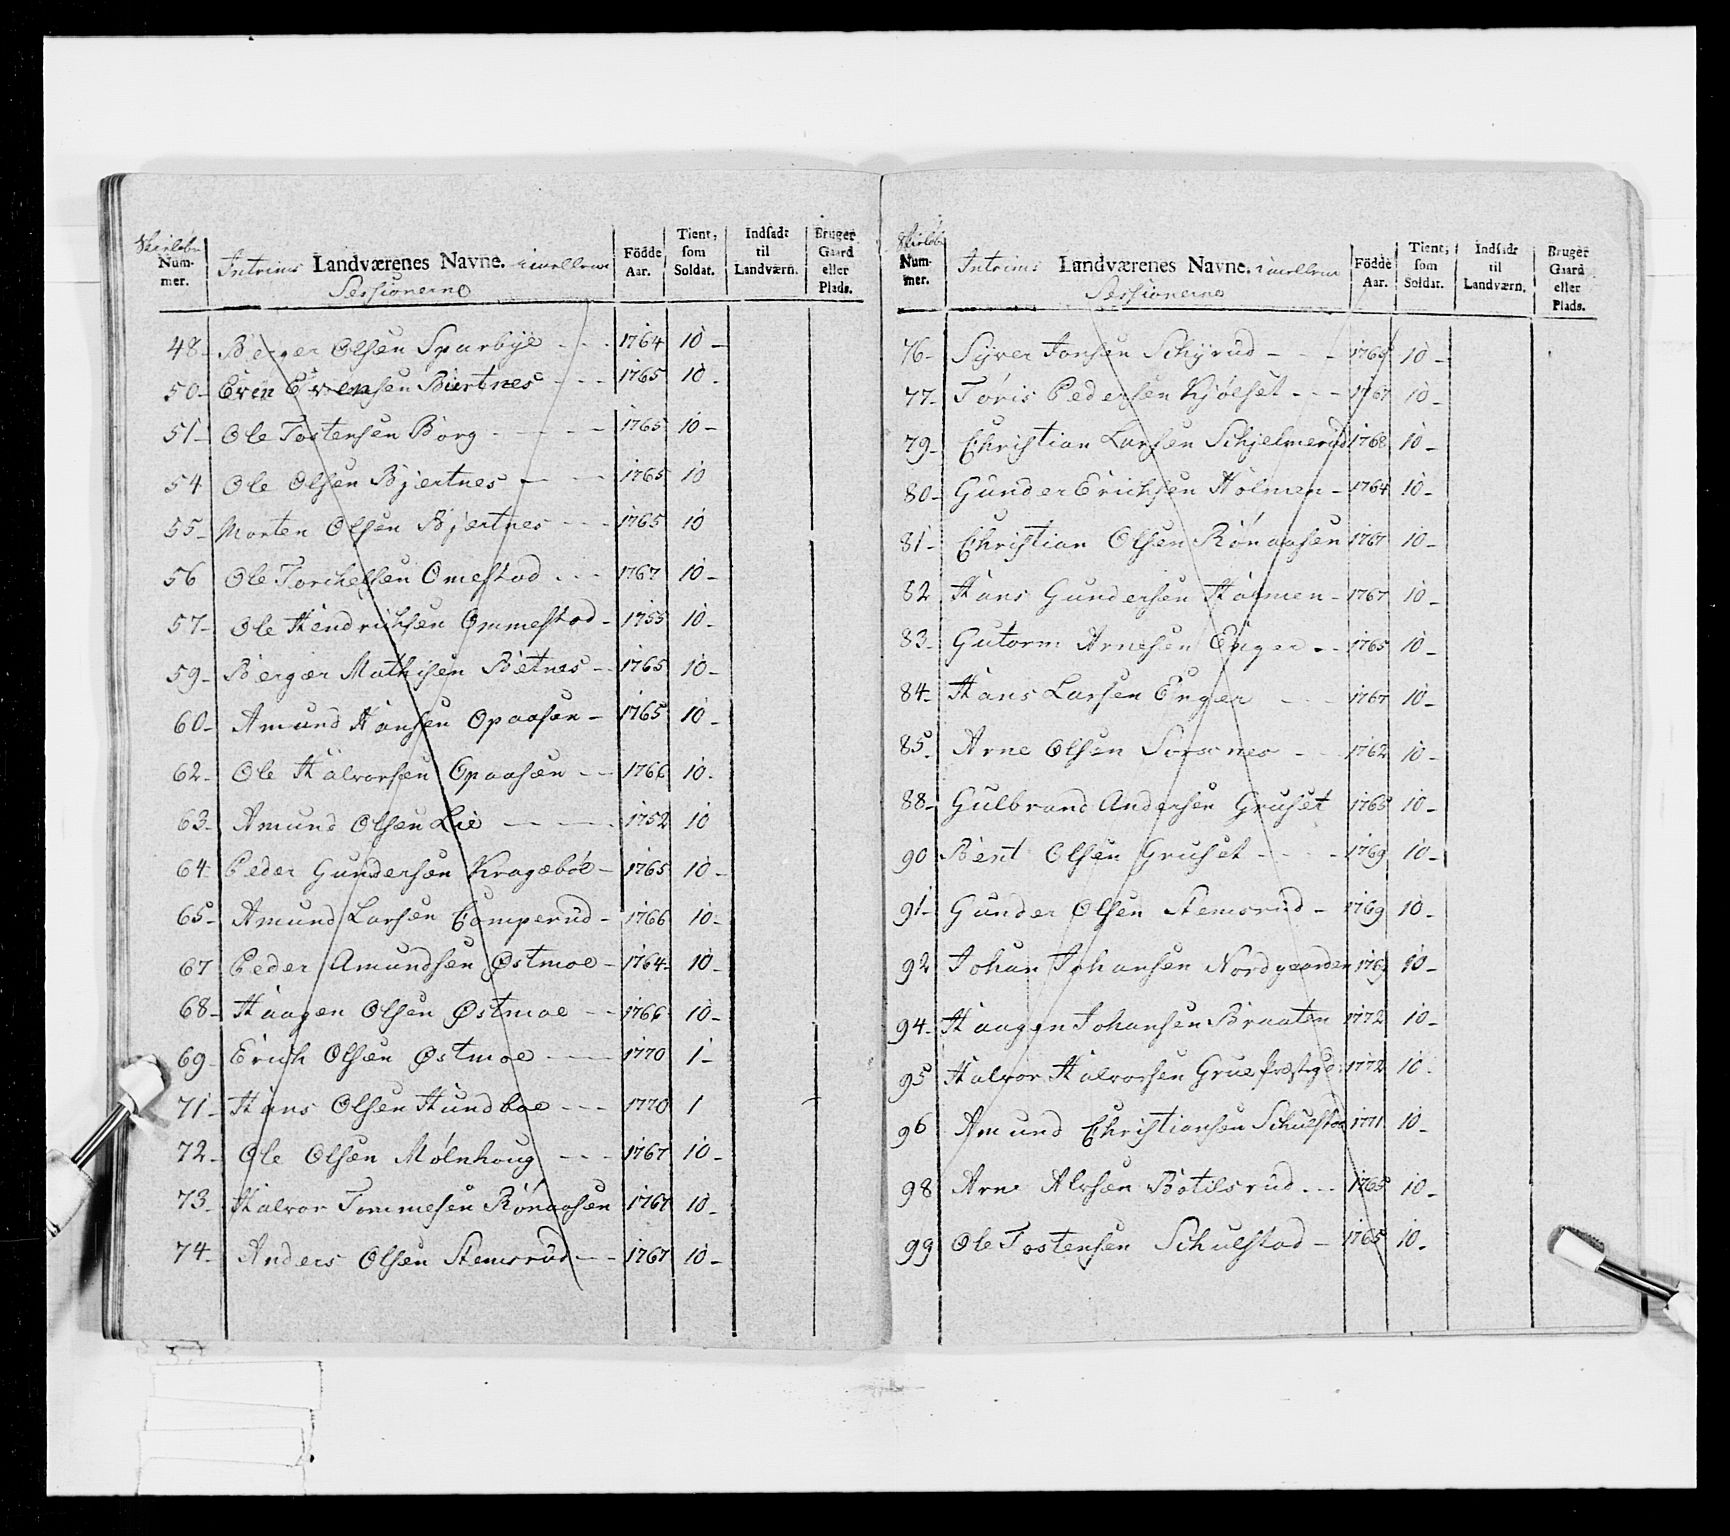 Num-
mer.
Intrims Landværenes Navne. imellem
Sessionerne
Födde
Aar.
Tient,
som
Soldat.
Indsadt
til
Landværn.
Bruger
Gaard
eller
Plads.
48- Berger Olsen Sparbye - - - 1764 10 -
50- Even Evensen Biertnes - - - 1765 10 -
51- Ole Tostensen Borg - - - - 1765 10 -
54 Ole Olsen Bjertnes - - - 1765 10
55- Morten Olsen Bjertnes - - - 1765 10
56 Ole Torchelsen Omestad - - - 1767 10 -
57- Ole Hendrichsen Ommestad - 1755 10 -
59- Berger Mathisen Betnes - - 1765 10 -
60- Amund Hansen Opaasen - 1765 10 -
62- Ole Halvorsen Opaasen - - 1766 10 -
63- Amund Olsen Lie - - - 1752 10
64- Peder Gundersen Kragebøe - 1765 10 -
65- Amund Larsen Camperud - 1766 10 -
67 Peder Amundsen Østmoe - 1764- 10 -
68- Haagen Olsen Østmoe - - 1766 10 -
69- Erich Olsen Østmoe - - - 1770 1 -
71- Hans Olsen Hundboe - - - 1770 1
72- Ole Olsen Mølnhoug - - - 1767 10 -
73- Halvor Tommesen Rønaasen 1767 10 -
74- Anders Olsen Stemsrud - - 1767 10 -
Num-
mer.
Intrims Landværenes Navne. imellem
Sessionerne
Födde
Aar.
Tient,
som
Soldat.
Indsadt
til
Landværn.
Bruger
Gaard
eller
Plads.
76- Syver Jonsen Schyrud - - - 1769 10 -
77- Tøris Pedersen Kjølset - - - 1767 10 -
79- Christian Larsen Schjelmerud 1768 10 -
80- Gunder Erichsen Holmen - 1764 10 -
81- Christian Olsen Rønaasen 1767 10 -
82 Hans Gundersen Holmen - 1767 10 -
83- Gutorm Arnesen Enger - - 1765 10 -
84- Hans Larsen Enger - - - 1767 10 -
85- Arne Olsen - - 1762 10 -
88- Gulbrand Andersen Gruset 1765 10 -
90 Bent Olsen Gruset - - - - 1769 10 -
91- Gunder Olsen Stemsrud - 1769 10 -
92 Johan Johansen Nordgaarden 10 -
94- Haagen Johansen Braaten 1772 10 -
95 Halvor Halvorsen Grue 1772 10 -
96 Amund Christiansen Schulstad 1771 10 -
98 Arne Alvsen Botilsrud - - - 1765 10 -
99 Ole Tostensen Schulstad - 1765 10 -